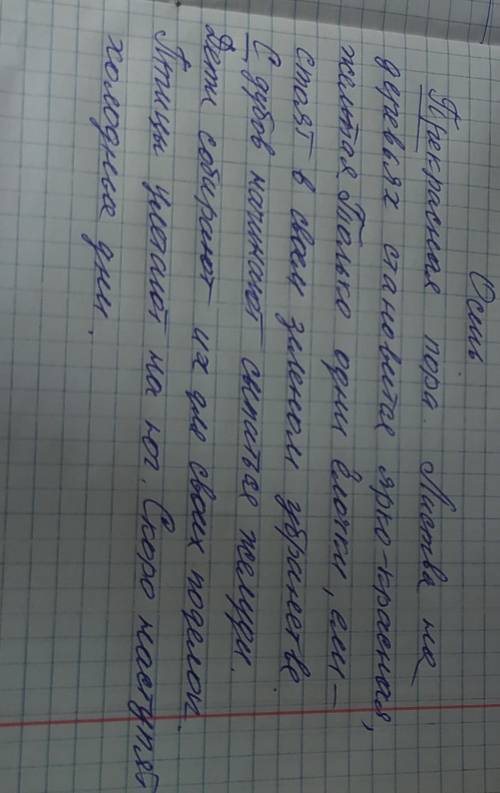 Осень
Прекрасная пора. Листва на
деревьях становится ярко-красная,
желтая. Только одни ёлочки, ели –
стоят в своем зеленом убранстве
С дубов начинают сыпаться желуди.
Дети собирают их для своих поделок.
Птицы улетают на юг. Скоро наступят
холодные дни.